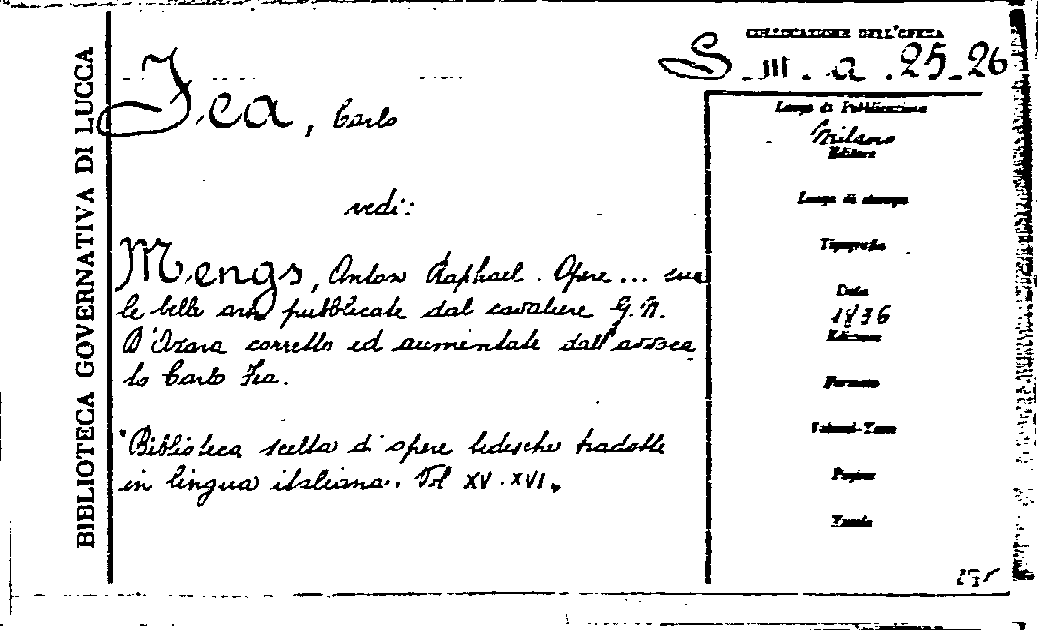 BIBLIOTECA GOVERNATIVA DI LUCCA
COLLOCAZIONE DELL'OPERA
S. m. a. 25-26
Fea, Carlo
vedi:
Mengs, Anton Raphael. Opere... sulle
le belle arti pubblicate dal cavaliere G.N.
D'Azara corretto ed aumentate dall'avvoca
to Carlo Fea.
"Biblioteca scelta di opere tedesche tradotte
in lingua italiana. Vol XV.XVI.
Luogo di Pubblicazione
Milano
Editore
Luogo di stampa
Tipografia
Data
1836
Edizione
Formato
Volumi-Tomi
Pagine
Tavole